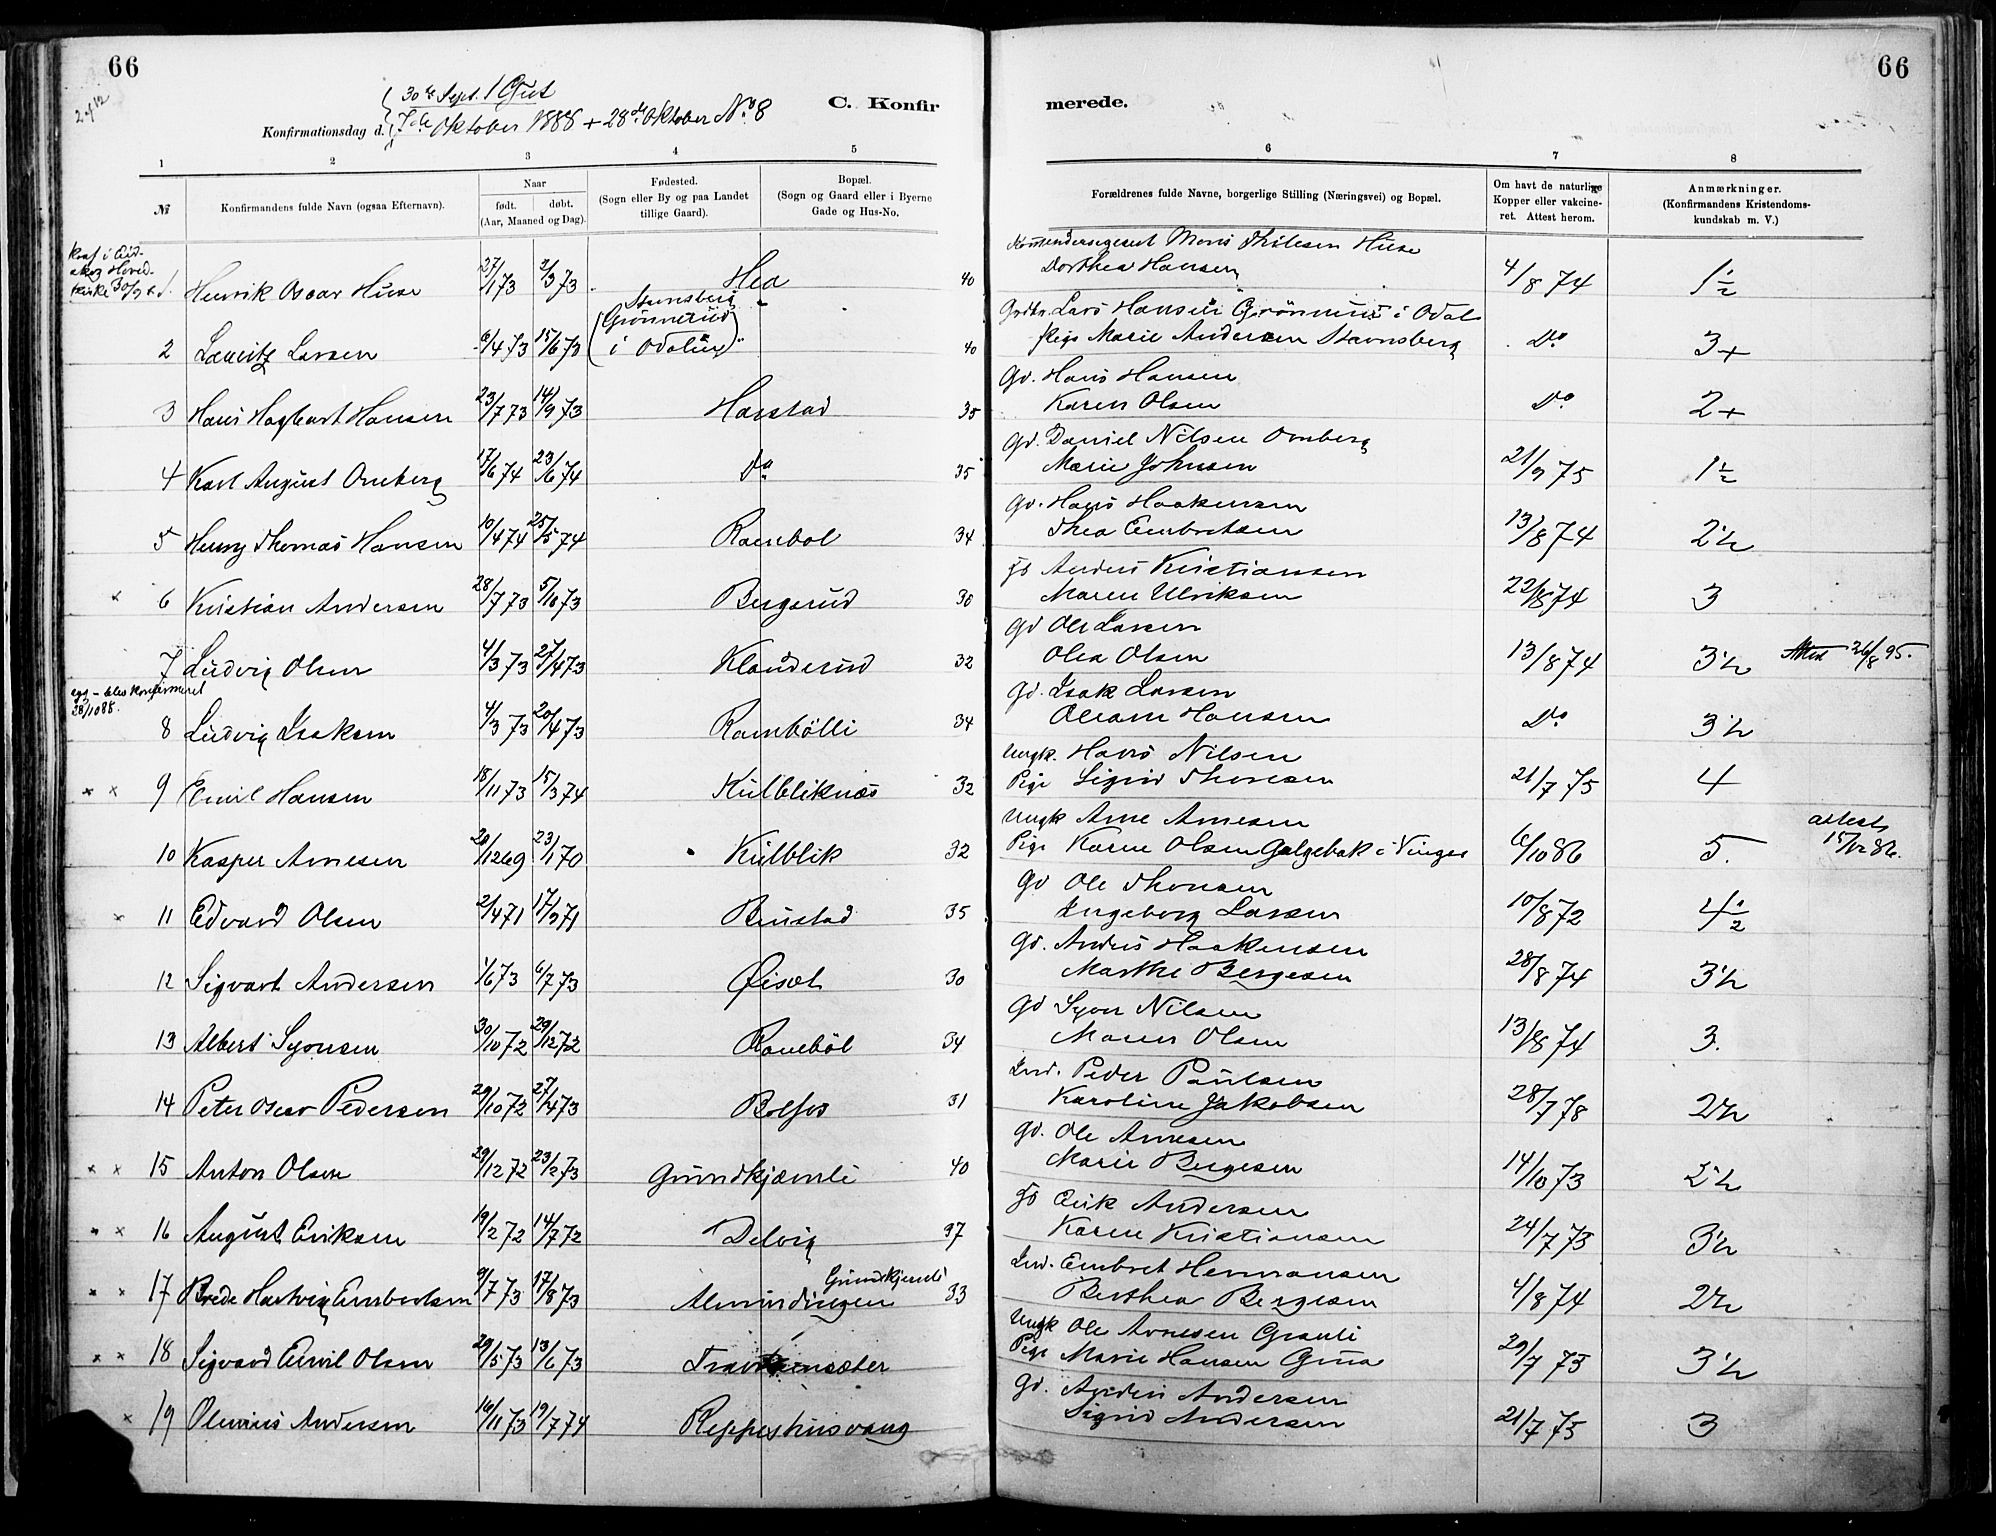 66
66
30te Sept. 1 Gut
7de Oktober 1888 + 28de Oktober No 8
Konfirmationsdag d.
C. Konfir
merede.
1 2 3 4 5 6 7 8
№
Konfirmandens fulde Navn (ogsaa Efternavn).
Naar
født. døbt.
(Aar, Maaned og Dag).
Fødested.
(Sogn eller By og paa Landet
tillige Gaard).
Bopæl.
(Sogn og Gaard eller i Byerne
Gade og Hus-No.
Forældrenes fulde Navne, borgerlige Stilling (Næringsvei) og Bopæl.
Om havt de naturlige
Kopper eller vakcine-
ret. Attest herom.
Anmærkninger.
(Konfirmandens Kristendoms-
kundskab m. V.)
Huse
1 Henrik Oscar Huse 27/1 73 2/3 73 Hea 40 Dorthea Hansen 4/8 74 1½
Gdbr. Lars Hansen i Odal
2 Lauritz Larsen 6/4 73 15/6 73 (Grønnerud i Odalen) 40 Pige Marie Andersen Stevnsberg Do 3+
Gd. Hans Hansen
3 Hans Hagbart Hansen 23/7 73 14/9 73 Harstad 35 Karen Olsen Do 2+
Gd. Daniel Nilsen Omberg
4 Karl August Omberg 17/6 74 23/6 74 Do 35 Marie Johnsen 21/9 75 1½
Gd. Hans Haakensen
5 Henry Thomas Hansen 10/4 74 25/5 74 Rambøl 34 Thea Embretsen 13/8 74 2½
Anders Kristiansen
× 6 Kristian Andersen 28/7 73 5/10 73 Bergerud 30 Maren Ulriksen 22/8 74 3
Gd Ole Larsen
7 Ludvig Olsen 4/3 73 27/4 73 Klanderud 32 Olea Olsen 13/8 74 3½ Attest 26/8 95.
blev konfirmeret
28/10 88.
Gd. Isak Larsen
8 Ludvig Isaksen 4/3 73 20/4 73 Rambølli 34 Oleane Hansen Do 3½
Ungk. Hans Nilsen
× × 9 Emil Hansen 18/11 73 15/3 74 Kulbliknæs 32 Pige Sigrid Thoresen 21/7 75 4
Ungk Arne Arnesen
10 Kasper Arnesen 28/12 69 23/1 70 Kulblik 32 Pige Karen Olsen Galgebak i Vinger 6/10 86 5. attest 15/12 86.
Gd Ole Thoresen
× 11 Edvard Olsen 2/4 71 17/9 71 Rustad 35 Ingeborg Larsen 10/8 72 4½
Gd. Anders Haakensen
12 Sigvart Andersen 1/6 73 6/7 73 Øiset 30 Marthe Bergesen 28/8 74 3½
Gd Syver Nilsen
13 Albert Syversen 30/10 72 29/12 72 Rambøl 34 Maren Olsen 13/8 74 3.
Ind. Peder Paulsen
14 Peter Oscar Pedersen 29/10 72 27/4 73 Bolfos 31 Karoline Jakobsen 28/7 78 2½
Gd. Ole Arnesen
× × 15 Anton Olsen 29/12 72 23/2 73 Grundkjærnli 40 Marie Bergesen 14/10 73 2½
Erik Andersen
× × 16 August Eriksen 19/2 72 14/7 72 Delvig 37 Karen Kristiansen 24/7 73 3½
Ind. Embret Hermansen
× × 17 Brede Hartvig Embretsen 9/7 73 17/8 73 Almindingen Grundkjernli 33 Berthea Bergesen 4/8 74 2½
Ungk Ole Arnesen Granli
× × 18 Sigvard Emil Olsen 29/5 73 13/6 73 Pige Marie Hansen 29/7 73 3½
Gd. Anders Andersen
× 19 Olenius Andersen 16/11 73 19/7 74 Reppeshusvang Sigrid Andersen 21/7 75 3